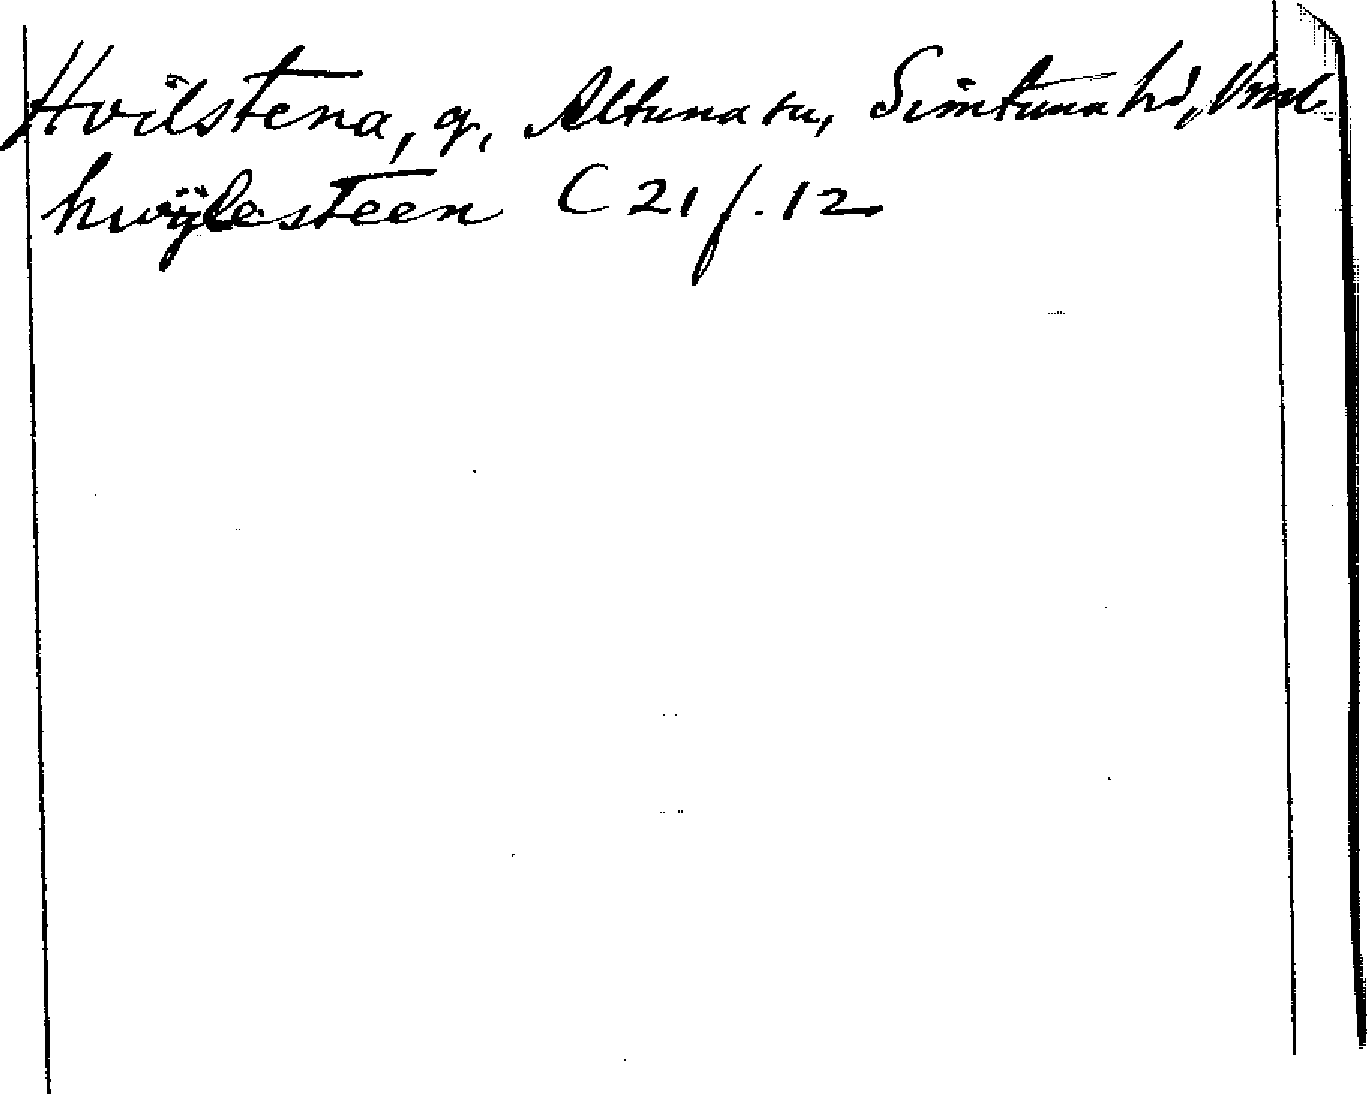 Hvilstena, g, Altuna sn, Simtuna hd, Vml.
hwÿlesteen C 21 f. 12